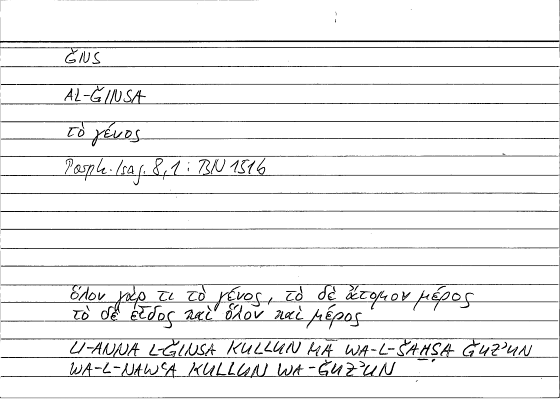 ǦNS
AL-ǦINSA
τὸ γένος
Porph. Isag. 8,1 : BN 1516
ὅλον γάρ τι τὸ γένος, τὸ δὲ ἄτομον μέρος
τὸ δὲ εἶδος καὶ ὅλον καὶ μέρος
LI-ANNA L-ǦINSA KULLUN MĀ WA-L-ŠAḪṢA ǦUZʾUN
WA-L-NAWʿA KULLUN WA-ǦUZʾUN